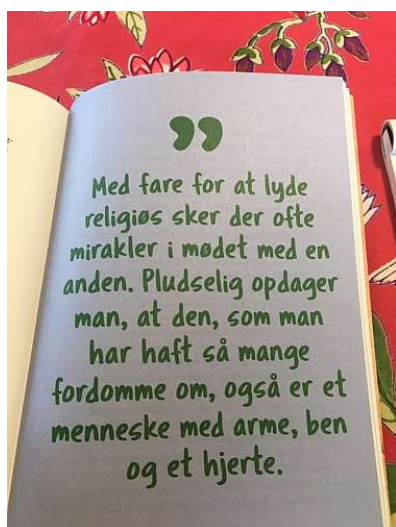 ”
Med fare for at lyde
religiøs sker der ofte
mirakler i mødet med en
anden. Pludselig opdager
man, at den, som man
har haft så mange
fordomme om, også er et
menneske med arme, ben
og et hjerte.